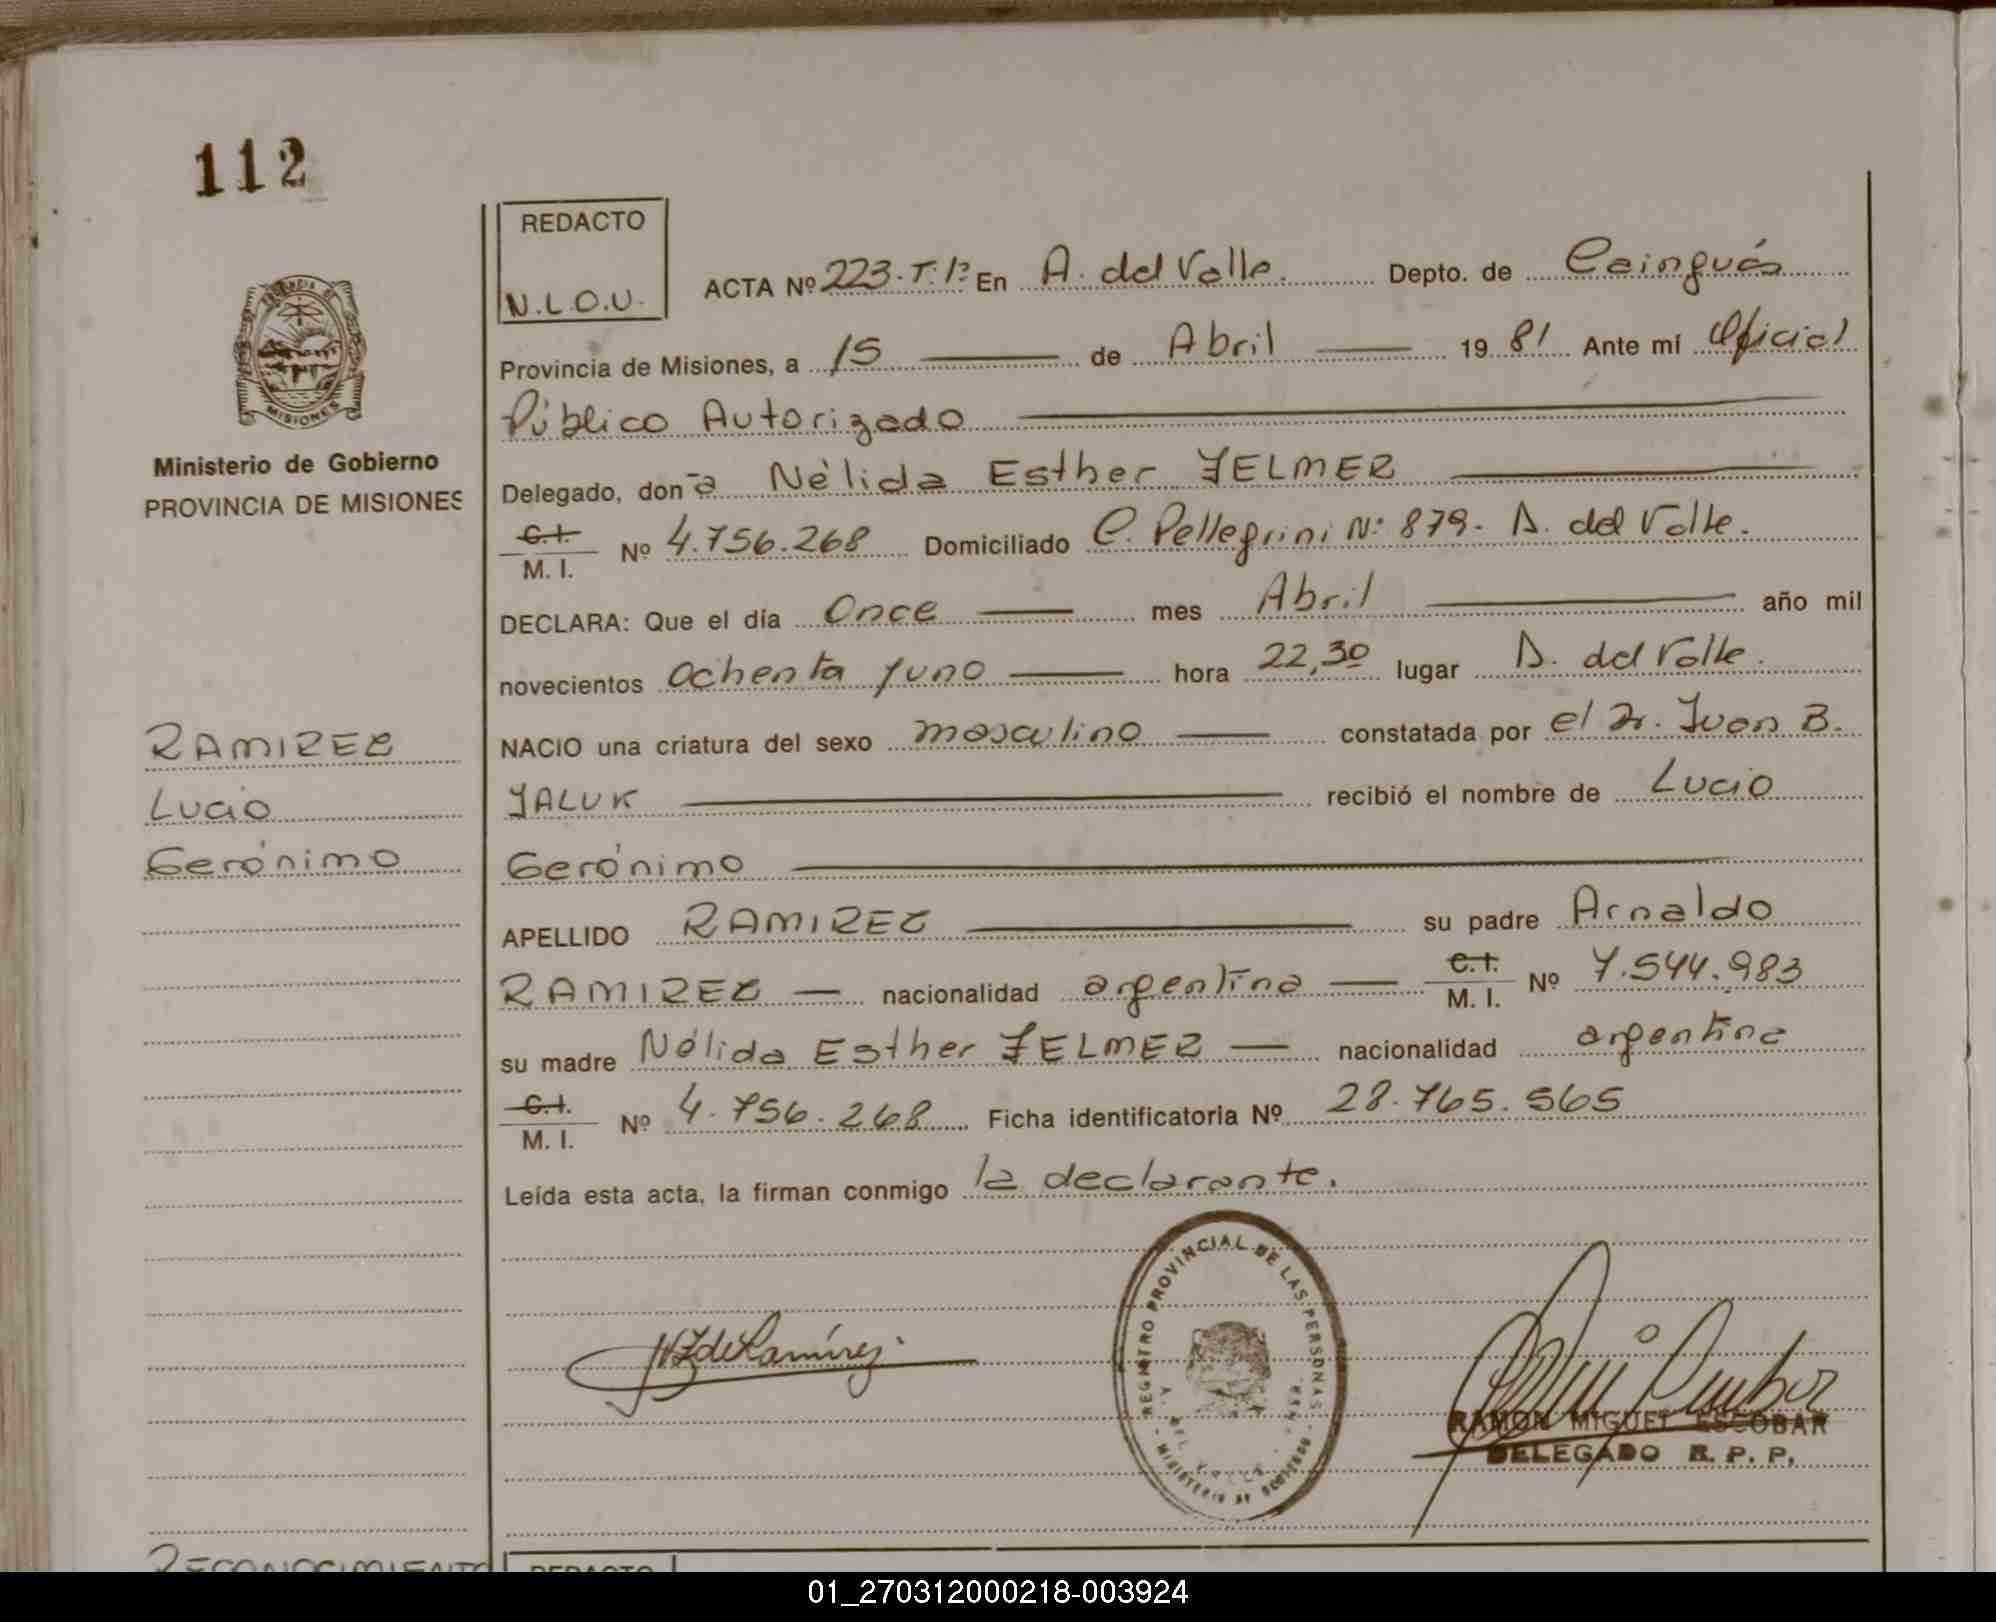 112
REDACTO
N.L.O.U.
ACTA Nº 223. T. 1º En A. del Valle. Depto. de Cainguás
Provincia de Misiones, a 15 de Abril 1981 Ante mí Oficial
Público Autorizado
Delegado, don a Nélida Esther ZELMER
C.I. M. I. Nº 4.756.268 Domiciliado C. Pellegrini Nº 879. A. del Valle.
DECLARA: Que el día Once mes Abril año mil
novecientos ochenta y uno hora 22,30 lugar A. del Valle.
NACIO una criatura del sexo masculino constatada por el Dr. Juan B.
YALUK recibió el nombre de Lucio
Gerónimo
APELLIDO RAMIREZ su padre Arnaldo
RAMIREZ nacionalidad argentina C.I. M. I. Nº 7.544.983
su madre Nélida Esther ZELMER nacionalidad argentina
C.I. M. I. Nº 4.756.268 Ficha identificatoria Nº 28.765.565
Leída esta acta, la firman conmigo la declarante.
MISIONES
Ministerio de Gobierno
PROVINCIA DE MISIONES
RAMIREZ
Lucio
Gerónimo
NZ de Ramírez
REGISTRO PROVINCIAL DE LAS PERSONAS
MINISTERIO DE GOBIERNO
RAMON MIGUEL ESCOBAR
DELEGADO R. P. P.
RECONOCIMIENTO
REDACTO
01_270312000218-003924